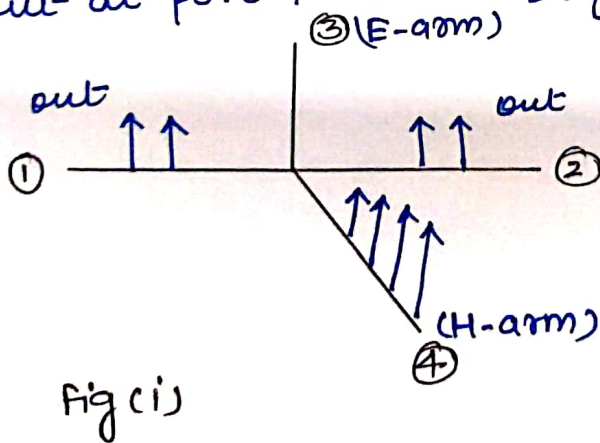 ③(E-arm)
out
out
①
②
(H-arm)
④
Fig (i)